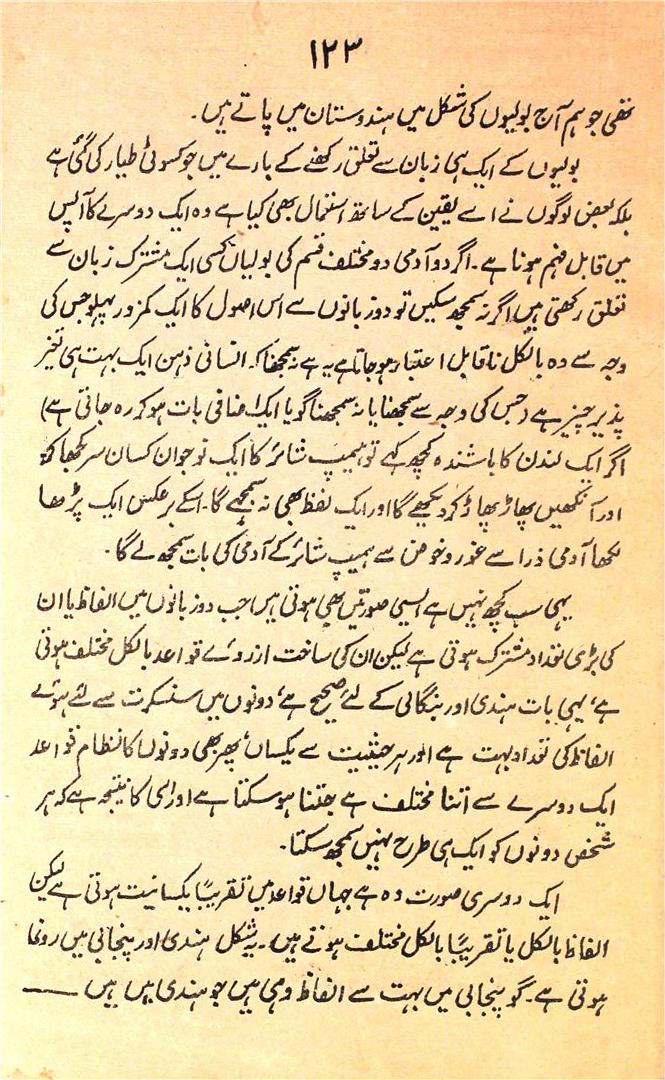 ۱۲۳
تھی جو ہم آج بولیوں کی شکل میں ہندوستان میں پاتے ہیں۔
بولیوں کے ایک ہی زبان سے تعلق رکھنے کے بارے میں جو کسوٹی طیار کی گئی ہے
بلکہ بعض لوگوں نے اسے یقین کے ساتھ استعمال بھی کیا ہے وہ ایک دوسرے کا آپس
میں قابل فہم ہونا ہے۔ اگر دو آدمی دو مختلف قسم کی بولیاں کسی ایک مشترک زبان سے
تعلق رکھتی ہیں اگر نہ سمجھ سکیں تو دو زبانوں سے اس اصول کا ایک کمزور پہلو جس کی
وجہ سے وہ بالکل ناقابل اعتبار ہو جاتا ہے یہ ہے نہ سمجھنا کہ انسانی ذہن ایک بہت ہی تغیر
پذیر چیز ہے (جس کی وجہ سے سمجھنا یا نہ سمجھنا گویا ایک اضافی بات ہو کر رہ جاتی ہے)
اگر ایک لندن کا باشندہ کچھ کہے تو ہیمپ شائر کا ایک نوجوان کسان سر کھجائے گا
اور آنکھیں پھاڑ پھاڑ کر دیکھے گا اور ایک لفظ بھی نہ سمجھے گا۔ اسکے برعکس ایک پڑھا
لکھا آدمی ذرا سے غور و خوض سے ہیمپ شائر کے آدمی کی بات سمجھ لے گا۔
یہی سب کچھ نہیں ہے ایسی صورتیں بھی ہوتی ہیں جب دو زبانوں میں الفاظ یا ان
کی بڑی تعداد مشترک ہوتی ہے لیکن ان کی ساخت ازروئے قواعد بالکل مختلف ہوتی
ہے، یہی بات ہندی اور بنگالی کے لئے صحیح ہے، دونوں میں سنسکرت سے لئے ہوئے
الفاظ کی تعداد بہت ہے اور ہر حیثیت سے یکساں، پھر بھی دونوں کا نظام قواعد
ایک دوسرے سے اتنا مختلف ہے جتنا ہو سکتا ہے اور اسی کا نتیجہ ہے کہ ہر
شخص دونوں کو ایک ہی طرح نہیں سمجھ سکتا۔
ایک دوسری صورت وہ ہے جہاں قواعد میں تقریباً یکسانیت ہوتی ہے لیکن
الفاظ بالکل یا تقریباً بالکل مختلف ہوتے ہیں۔ یہ شکل ہندی اور پنجابی میں رونما
ہوتی ہے۔ گو پنجابی میں بہت سے الفاظ وہی ہیں جو ہندی میں ہیں ــــــ